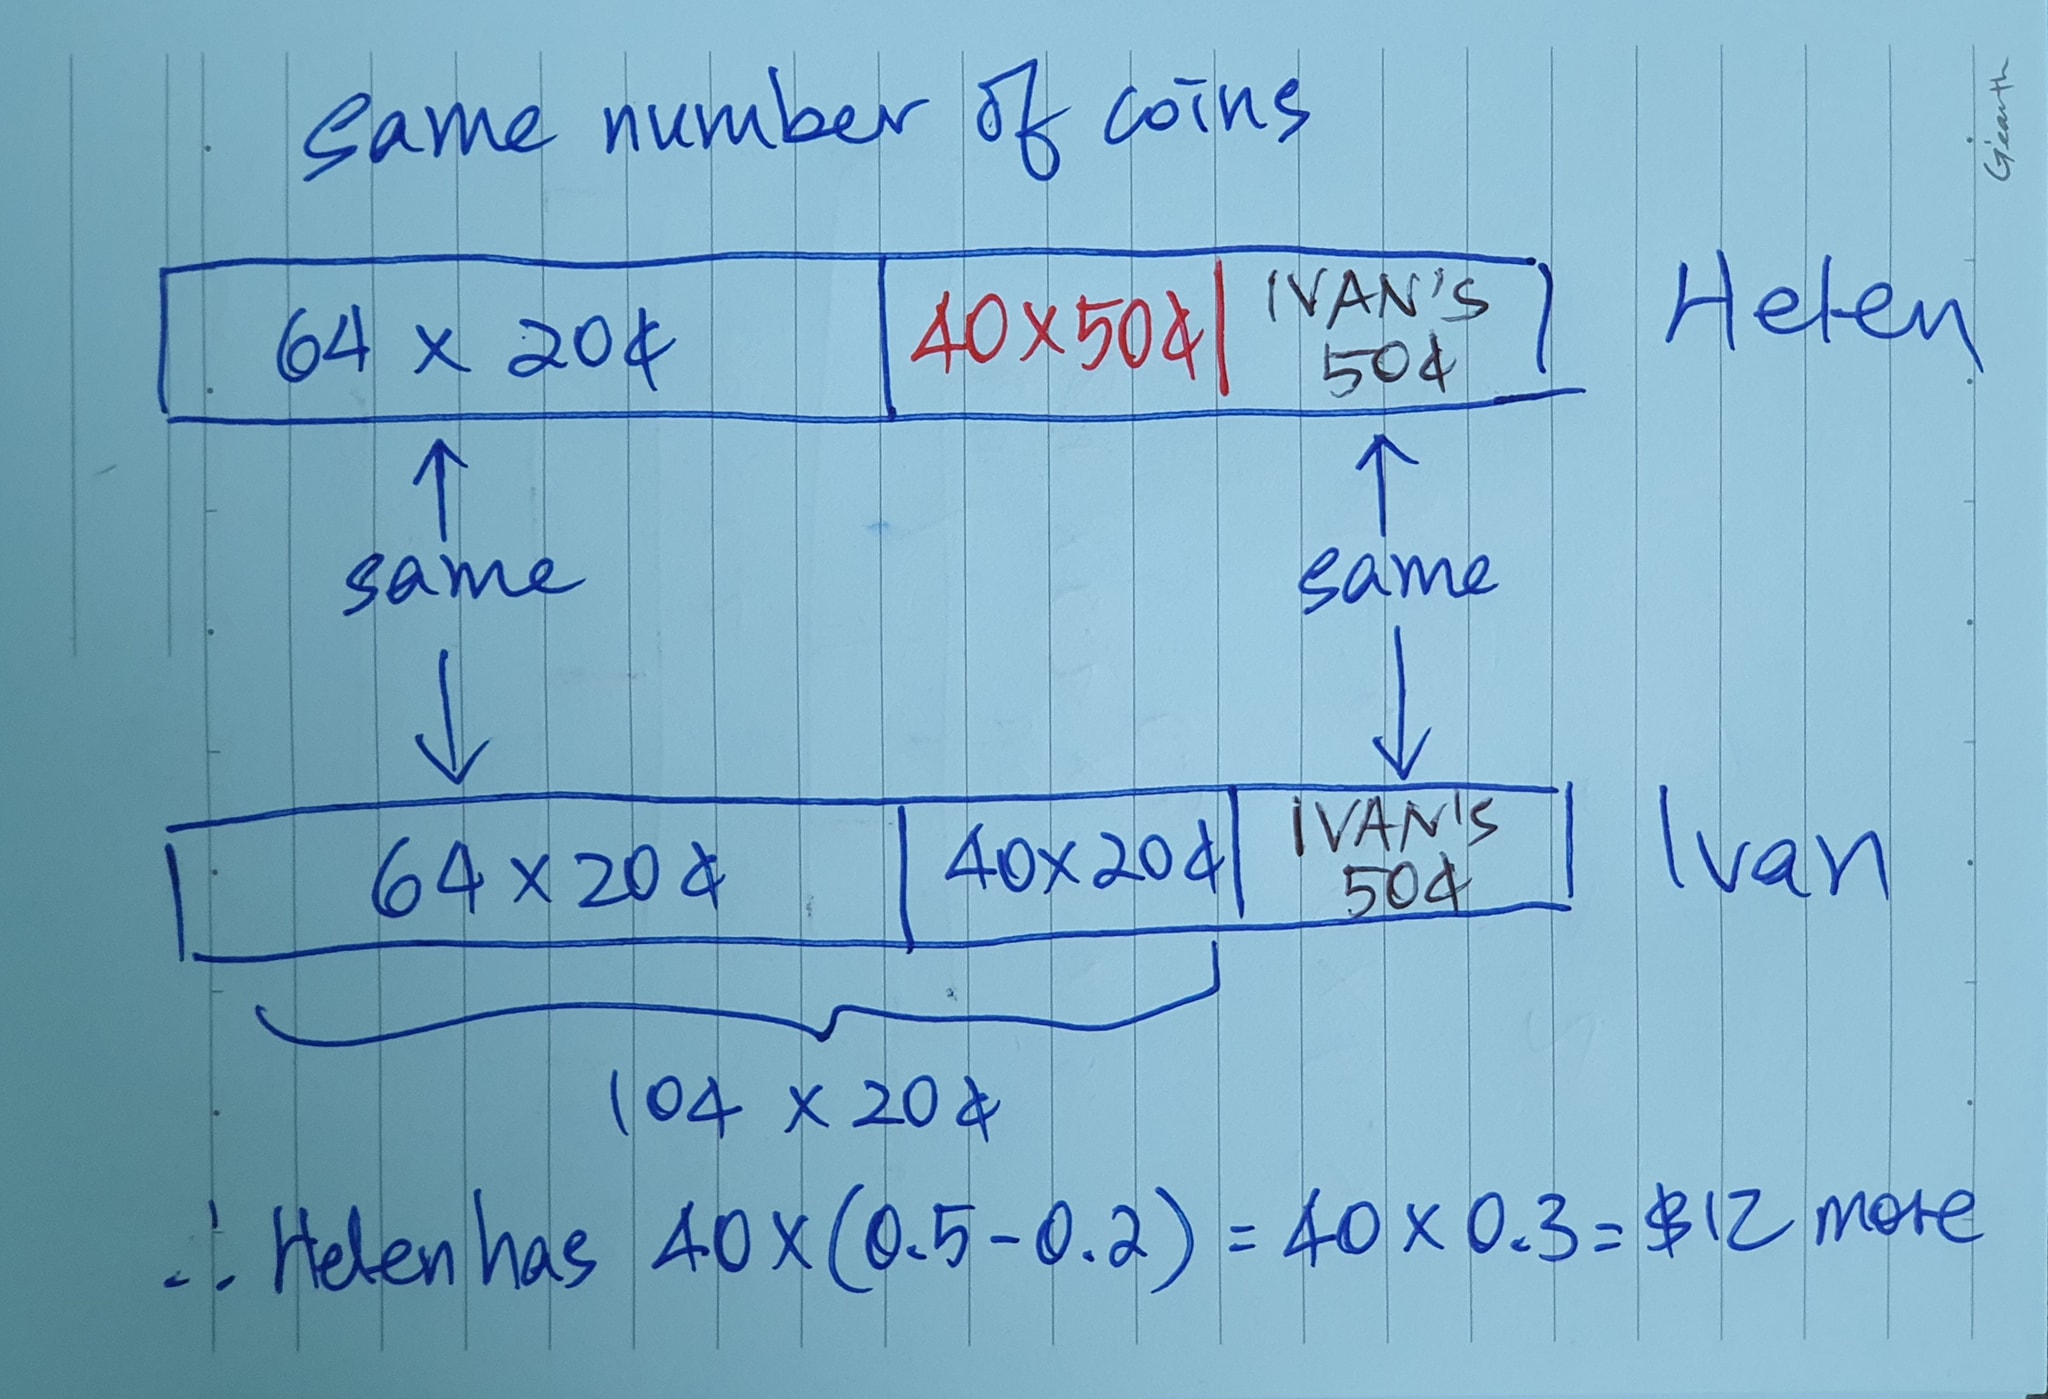 same number of coins
64 x 20¢ 40x50¢ IVAN'S 50¢ Helen
same same
64 x 20¢ 40x20¢ IVAN'S 50¢ Ivan
104 x 20¢
∴ Helen has 40x(0.5-0.2) = 40 x 0.3 = $12 more